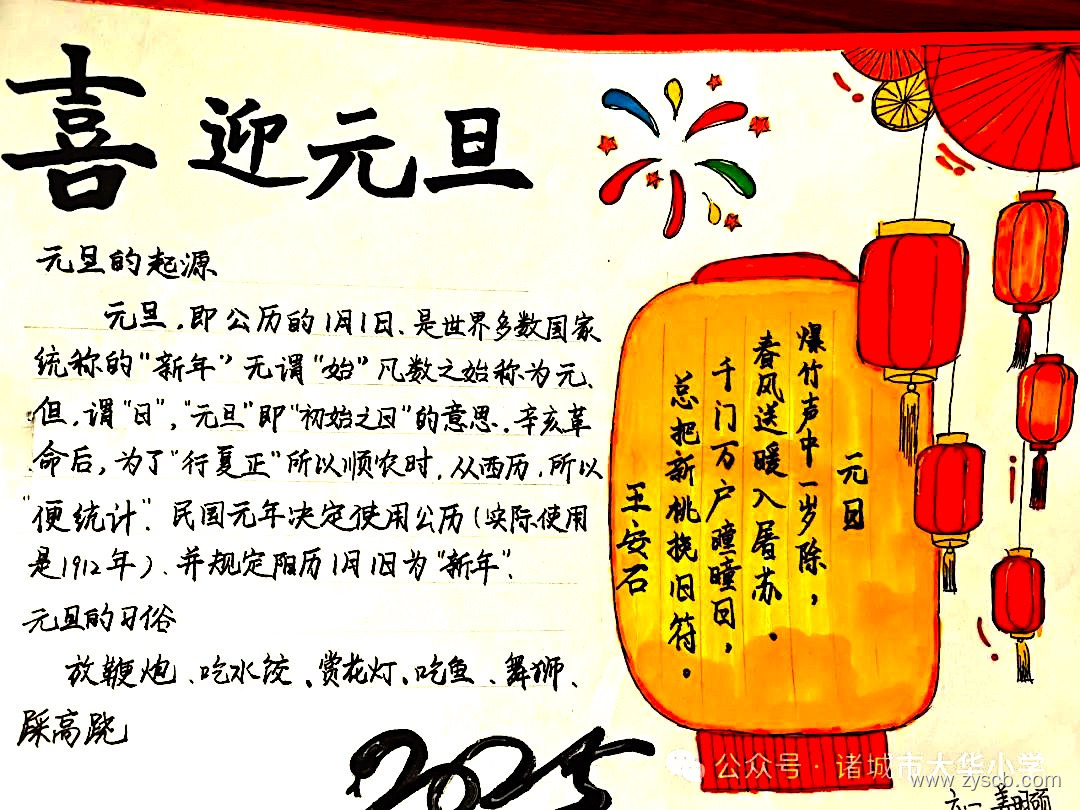 喜迎元旦
元旦的起源
元旦,即公历的1月1日、是世界多数国家
统称的“新年”无谓“始”凡数之始称为元、
但,谓“日”,“元旦”即“初始之日”的意思。辛亥革
命后,为了“行夏正”所以顺农时,从西历,所以
“便统计”.民国元年决定使用公历(实际使用
是1912年)、并规定阳历1月1日为“新年”.
元旦的习俗
放鞭炮、吃水饺、赏花灯、吃鱼、舞狮、
踩高跷
2025
元日
爆竹声中一岁除,
春风送暖入屠苏.
千门万户曈曈日,
总把新桃换旧符.
王安石
公众号·诸城市大华小学
www.zyscb.com